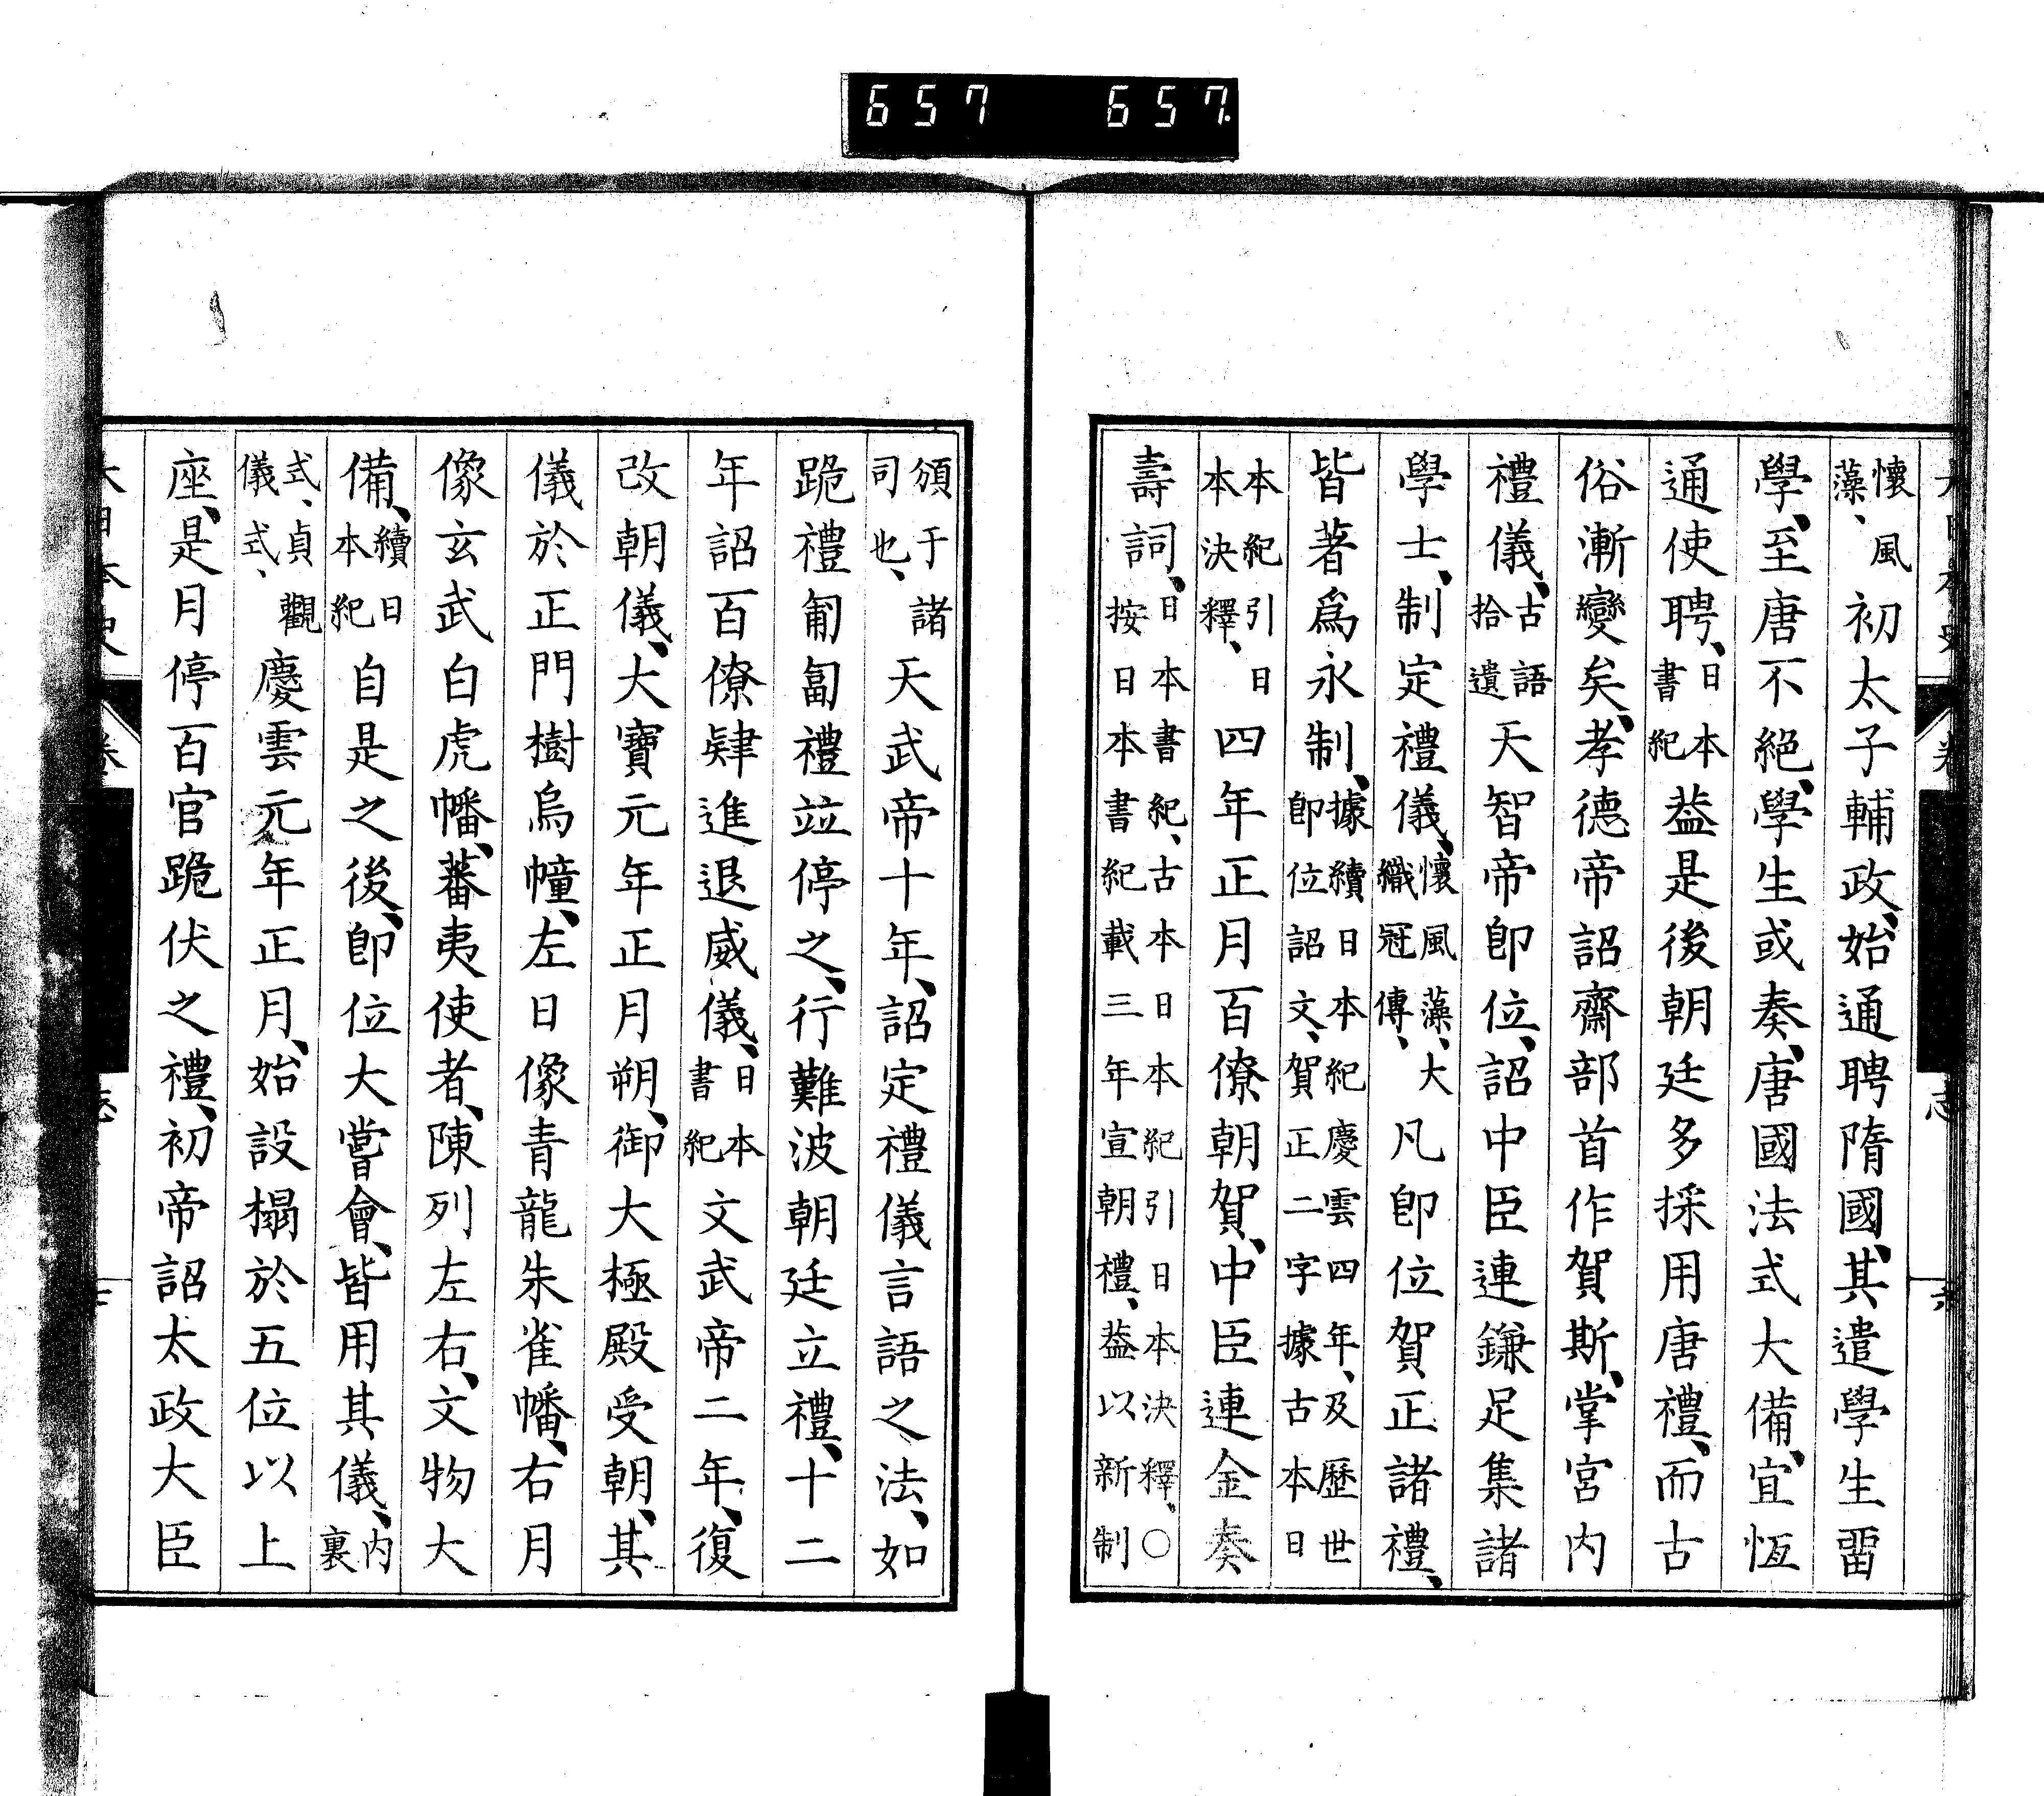 657 657
懷風藻、初太子輔政、始通聘隋國、其遣學生畱
學、至唐不絕、學生或奏、唐國法式大備、宜恆
通使聘、日本書紀蓋是後朝廷多採用唐禮、而古
俗漸變矣、孝德帝詔齋部首作賀斯、掌宮內
禮儀、古語拾遺天智帝卽位、詔中臣連鎌足集諸
學士、制定禮儀、懷風藻、大織冠傳、凡卽位賀正諸禮、
皆著爲永制、據續日本紀慶雲四年、及歷世卽位詔文、賀正二字據古本日
本紀引日本決釋、四年正月百僚朝賀、中臣連金奏
壽詞、日本書紀、古本日本紀引日本決釋、○按日本書紀載三年宣朝禮、蓋以新制
頒于諸司也、天武帝十年、詔定禮儀言語之法、如
跪禮匍匐禮竝停之、行難波朝廷立禮、十二
年詔百僚肄進退威儀、日本書紀文武帝二年、復
改朝儀、大寶元年正月朔、御大極殿受朝、其
儀於正門樹烏幢、左日像青龍朱雀幡、右月
像玄武白虎幡、蕃夷使者、陳列左右、文物大
備、續日本紀自是之後、卽位大嘗會、皆用其儀、內裏
式、貞觀儀式、慶雲元年正月、始設榻於五位以上
座、是月停百官跪伏之禮、初帝詔太政大臣